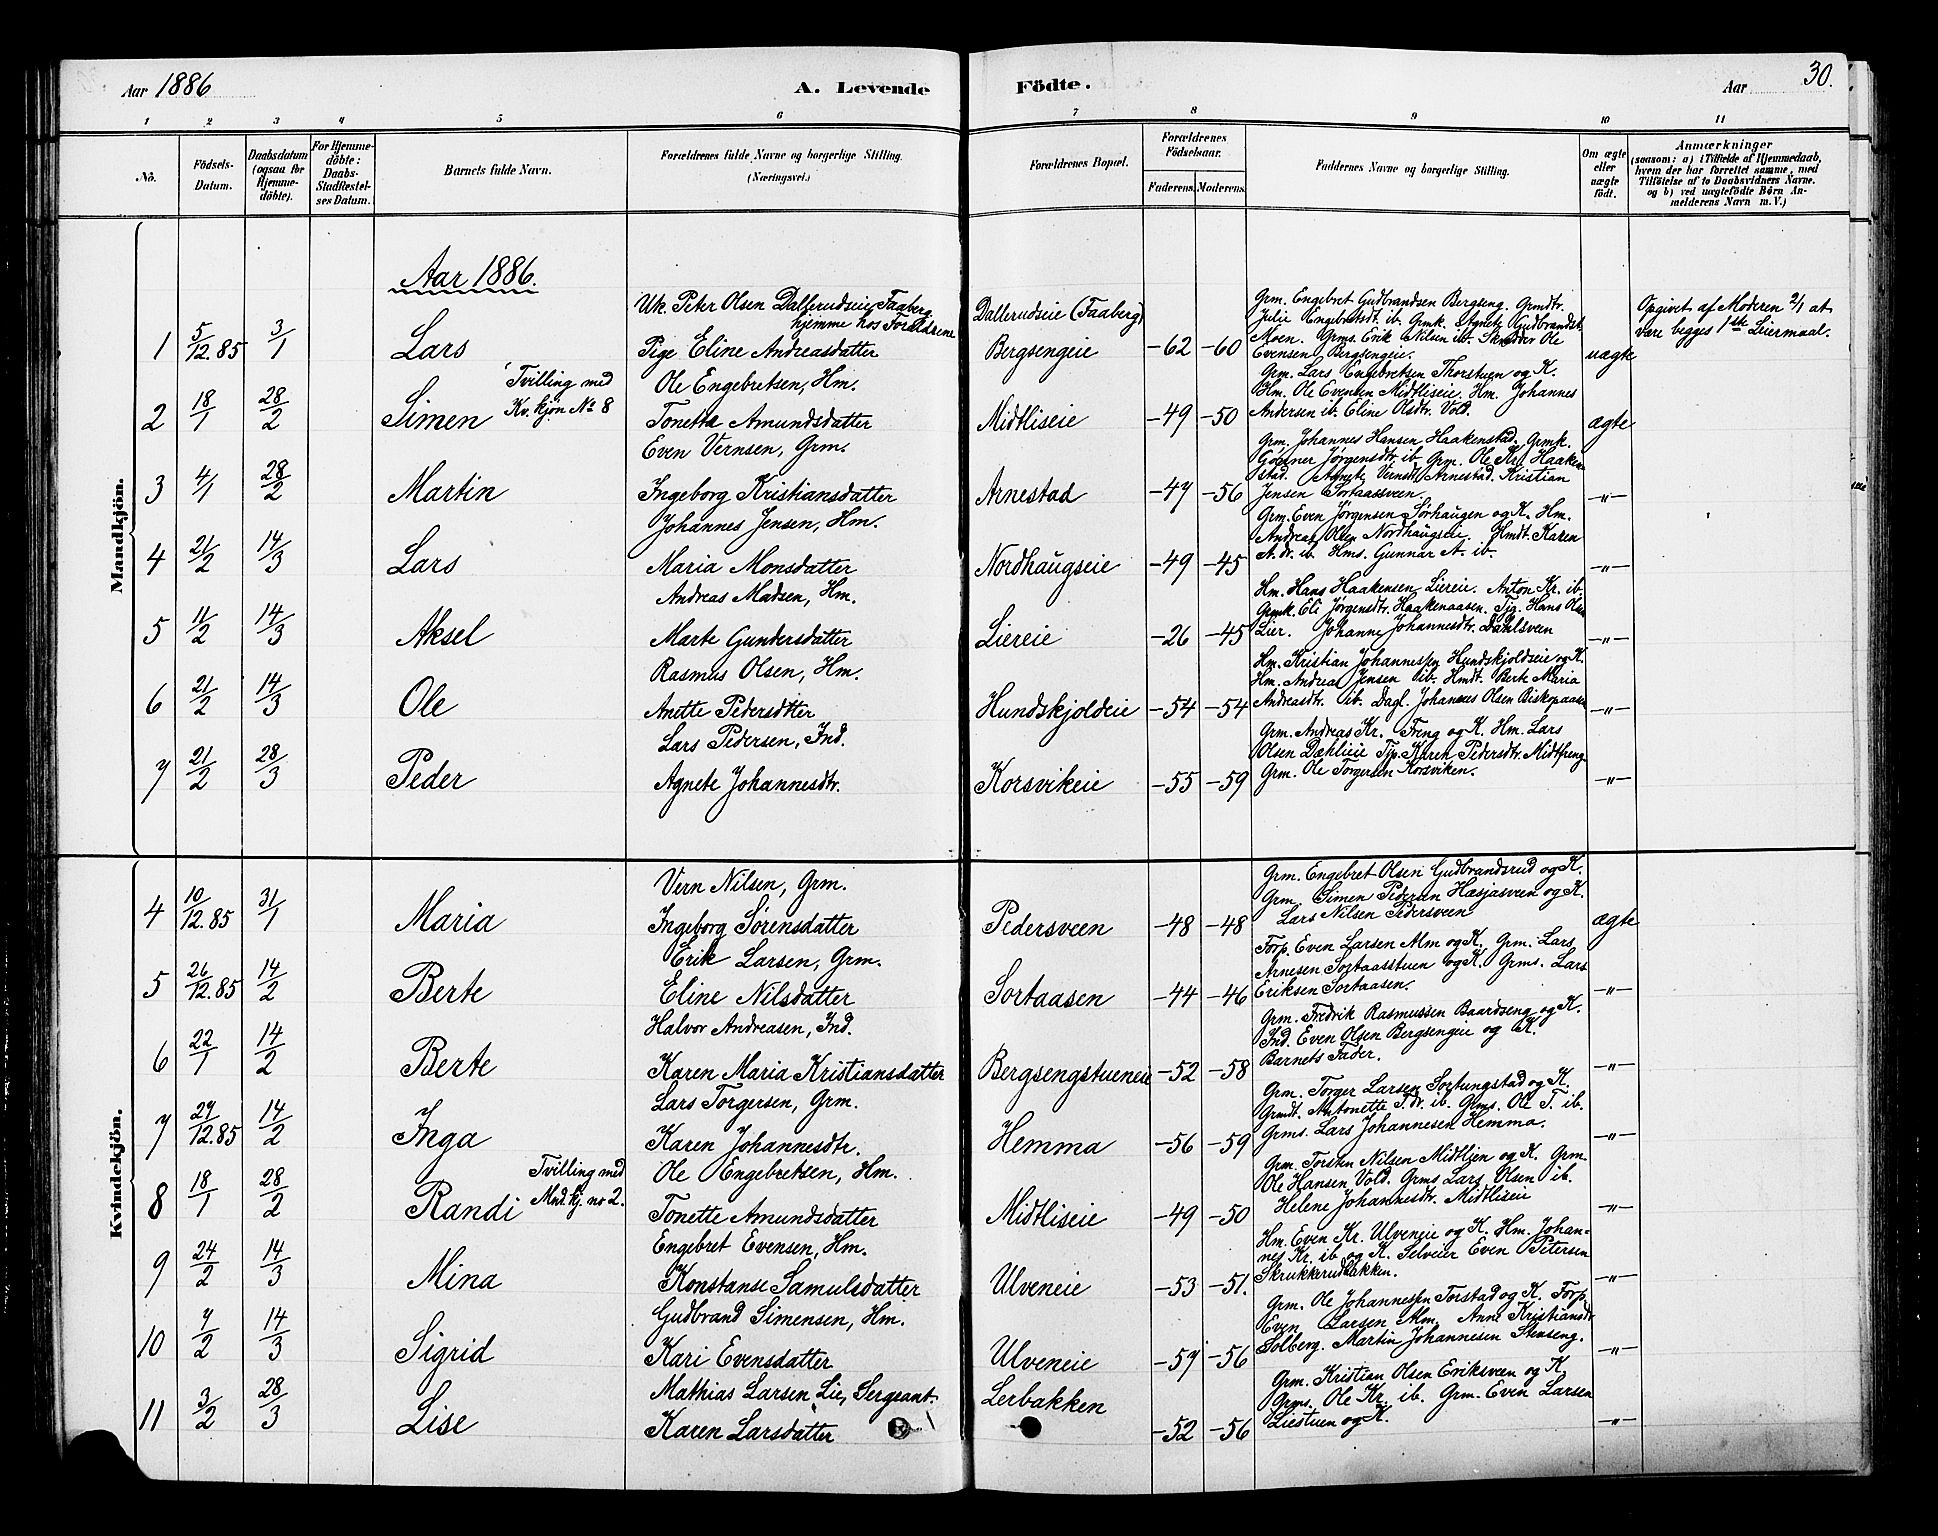 Aar 1886
A. Levende
Födte.
Aar
30.
1 2 3 4 5 6 7 8 9 10 11
No.
Födsels-
Datum.
Daabsdatum
(ogsaa for
Hjemme-
döbte).
For Hjemme-
döbte:
Daabs-
Stadfæstel-
ses Datum.
Barnets fulde Navn.
Forældrenes fulde Navne og borgerlige Stilling.
(Næringsvei.)
Forældrenes Bopæl.
Forældrenes
Födselsaar.
Faderens. Moderens.
Faddernes Navne og borgerlige Stilling.
Om ægte
eller
uægte
födt.
Anmærkninger
(saasom: a) i Tilfælde af Hjemmedaab,
hvem der har forrettet samme, med
Tilföielse af to Daabsvidners Navne.
og b) ved uægtefödte Börn An-
melderens Navn m. V.)
Mandkjön.
Aar 1886.
1 5/12.85 3/1 Lars
Uk. Peter Olsen Dallerudseie Faaberg
hjemme hos Forældrene
Pige Eline Andreasdatter
Dallerudseie (Faaberg)
Bergsengeie -62 -60
Grm. Engebret Gudbrandsen Bergseng. Grmdtr.
Julie Engebretsdt. ib. Grmk. Agnete Gudbrandsd.
Moen. Grms. Erik Nilsen ib. Skrædder Ole
Evensen Bergsengeie.
uægte
Opgivet af Moderen 2/1 at
være begges 1ste Leiermaal.
2 18/1 28/2 Simen
Tvilling med
Kv.kjøn No 8
Ole Engebretsen, Hm.
Tonette Amundsdatter
Midtliseie -49 -50
Grm. Lars Engebretsen Thorstuen og K.
Hm. Ole Evensen Midtliseie. Hm. Johannes
Andersen ib. Eline Olsdtr. Vold.
ægte
3 4/1 28/2 Martin
Even Vernsen, Grm.
Ingeborg Kristiansdatter
Arnestad -47 -56
Grm. Johannes Hansen Haakenstad. Grmk.
Jørgensdtr. ib. Grm. Ole Kr. Haaken
stad. Agnete Vernsdt. Arnestad. Kristian
Jensen Sortaassveen.
-"-
4 21/2 14/3 Lars
Johannes Jensen, Hm.
Maria Monsdatter
Nordhaugseie -49 -45
Grm. Even Jørgensen Sørhaugen og K. Hm.
Andreas Olsen Nordhaugseie. Hmdt. Karen
A.dr. ib. Hms. Gunnar A. ib.
-"-
5 11/2 14/3 Aksel
Andreas Madsen, Hm.
Marte Gundersdatter
Liereie -26 -45
Hm. Hans Haakensen Liereie. Anton Kr. ib.
Grmk. Eli Jørgensdtr. Haakenaasen. Tjg. Hans Olsen
Lier. Johanne Johannesdtr. Dahlsveen
-"-
6 21/2 14/3 Ole
Rasmus Olsen, Hm.
Anette Pedersdtter
Hundskjoldeie -54 -54
Hm. Kristian Johannessen Hundskjoldseie og K.
Hm. Andreas Jensen ib. Hmdt. Berte Maria
Andreasdtr. ib. Dagl. Johannes Olsen Biskopaasen
-"-
7 21/2 28/3 Peder
Lars Pedersen, Ind.
Agnete Johannesdtr.
Korsvikeie -55 -59
Grm. Andreas Kr. Freng og K. Hm. Lars
Olsen Dæhlieie Tjp. Karen Pedersdtr. Midtfreng
Grm. Ole Torgersen Korsviken.
-"-
Kvindekjön.
4 10/12.85 31/1 Maria
Vern Nilsen, Grm.
Ingeborg Sørensdatter
Pedersveen -48 -48
Grm. Engebret Olsen Gudbrandsrud og K.
Grm. Simen Pedersen Hasjasveen og K.
Lars Nilsen Pedersveen
ægte
5 26/12.85 14/2 Berte
Erik Larsen, Grm.
Eline Nilsdatter
Sortaasen -44 -46
Forp. Even Larsen Mm og K. Grm. Lars
Arnesen Sortaasstuen og K. Grms. Lars
Eriksen Sortaasen.
-"-
6 22/1 14/2 Berte
Halvor Andreasen, Ind.
Karen Maria Kristiansdatter
Bergsengstueneie -52 -58
Grm. Fredrik Rasmussen Baardseng og K.
Ind. Even Olsen Bergsengeie og K.
Barnets Fader.
-"-
7 27/12.85 14/2 Inga
Lars Torgersen, Grm.
Karen Johannesdtr.
Hemma -56 -59
Grm. Torger Larsen Sortungstad og K.
Grmdt. Antonette T.dr. ib. Grms. Ole T. ib.
Grms. Lars Johannesen Hemma.
-"-
8 18/1 28/2 Randi
Tvilling med
Mnd.kj. no 2.
Ole Engebretsen, Hm.
Tonette Amundsdatter
Midtliseie -49 -50
Grm. Torsten Nilsen Midtlien og K. Grm.
Ole Hansen Vold. Grms Lars Olsen ib.
Helene Johannesdtr. Midtliseie
-"-
9 24/2 14/3 Mina
Engebret Evensen, Hm.
Konstanse Samulsdatter
Ulveneie -53 -51.
Hm. Even Kr. Ulveneie og K. Hm. Johan-
nes Kr. ib. og K. Selveier Even Petersen
Skrukkerudbakken.
-"-
10 7/2 14/3 Sigrid
Gudbrand Simensen, Hm.
Kari Evensdatter
Ulveneie -57 -56
Grm. Ole Johannessen Torstad og K. Forp.
Even Larsen Mm. Anne Kristiansdr
Solberg. Martin Johannesen Stenseng.
-"-
11 3/2 28/3 Lise
Mathias Larsen Lie, Sergeant.
Karen Larsdatter
Lerbakken -52 -56
Grm. Kristian Olsen Eriksveen og K.
Grms. Ole Kr. ib. Grm. Even Larsen
Liestuen og K.
-"-